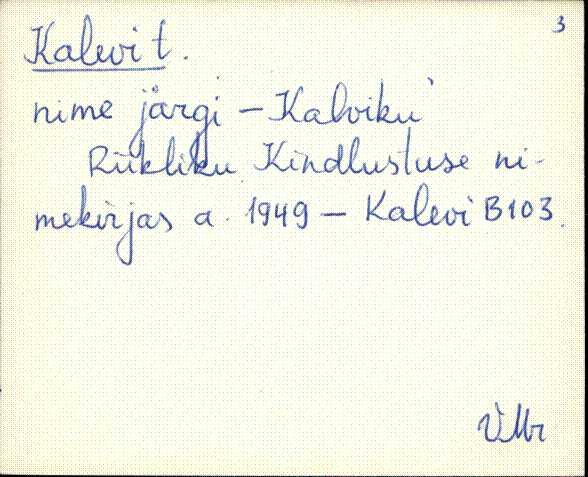 3
Kalevi t.
nime järgi – Kalviku
Riikliku Kindlustuse ni-
mekirjas a. 1949 – Kalevi B103.
VMr